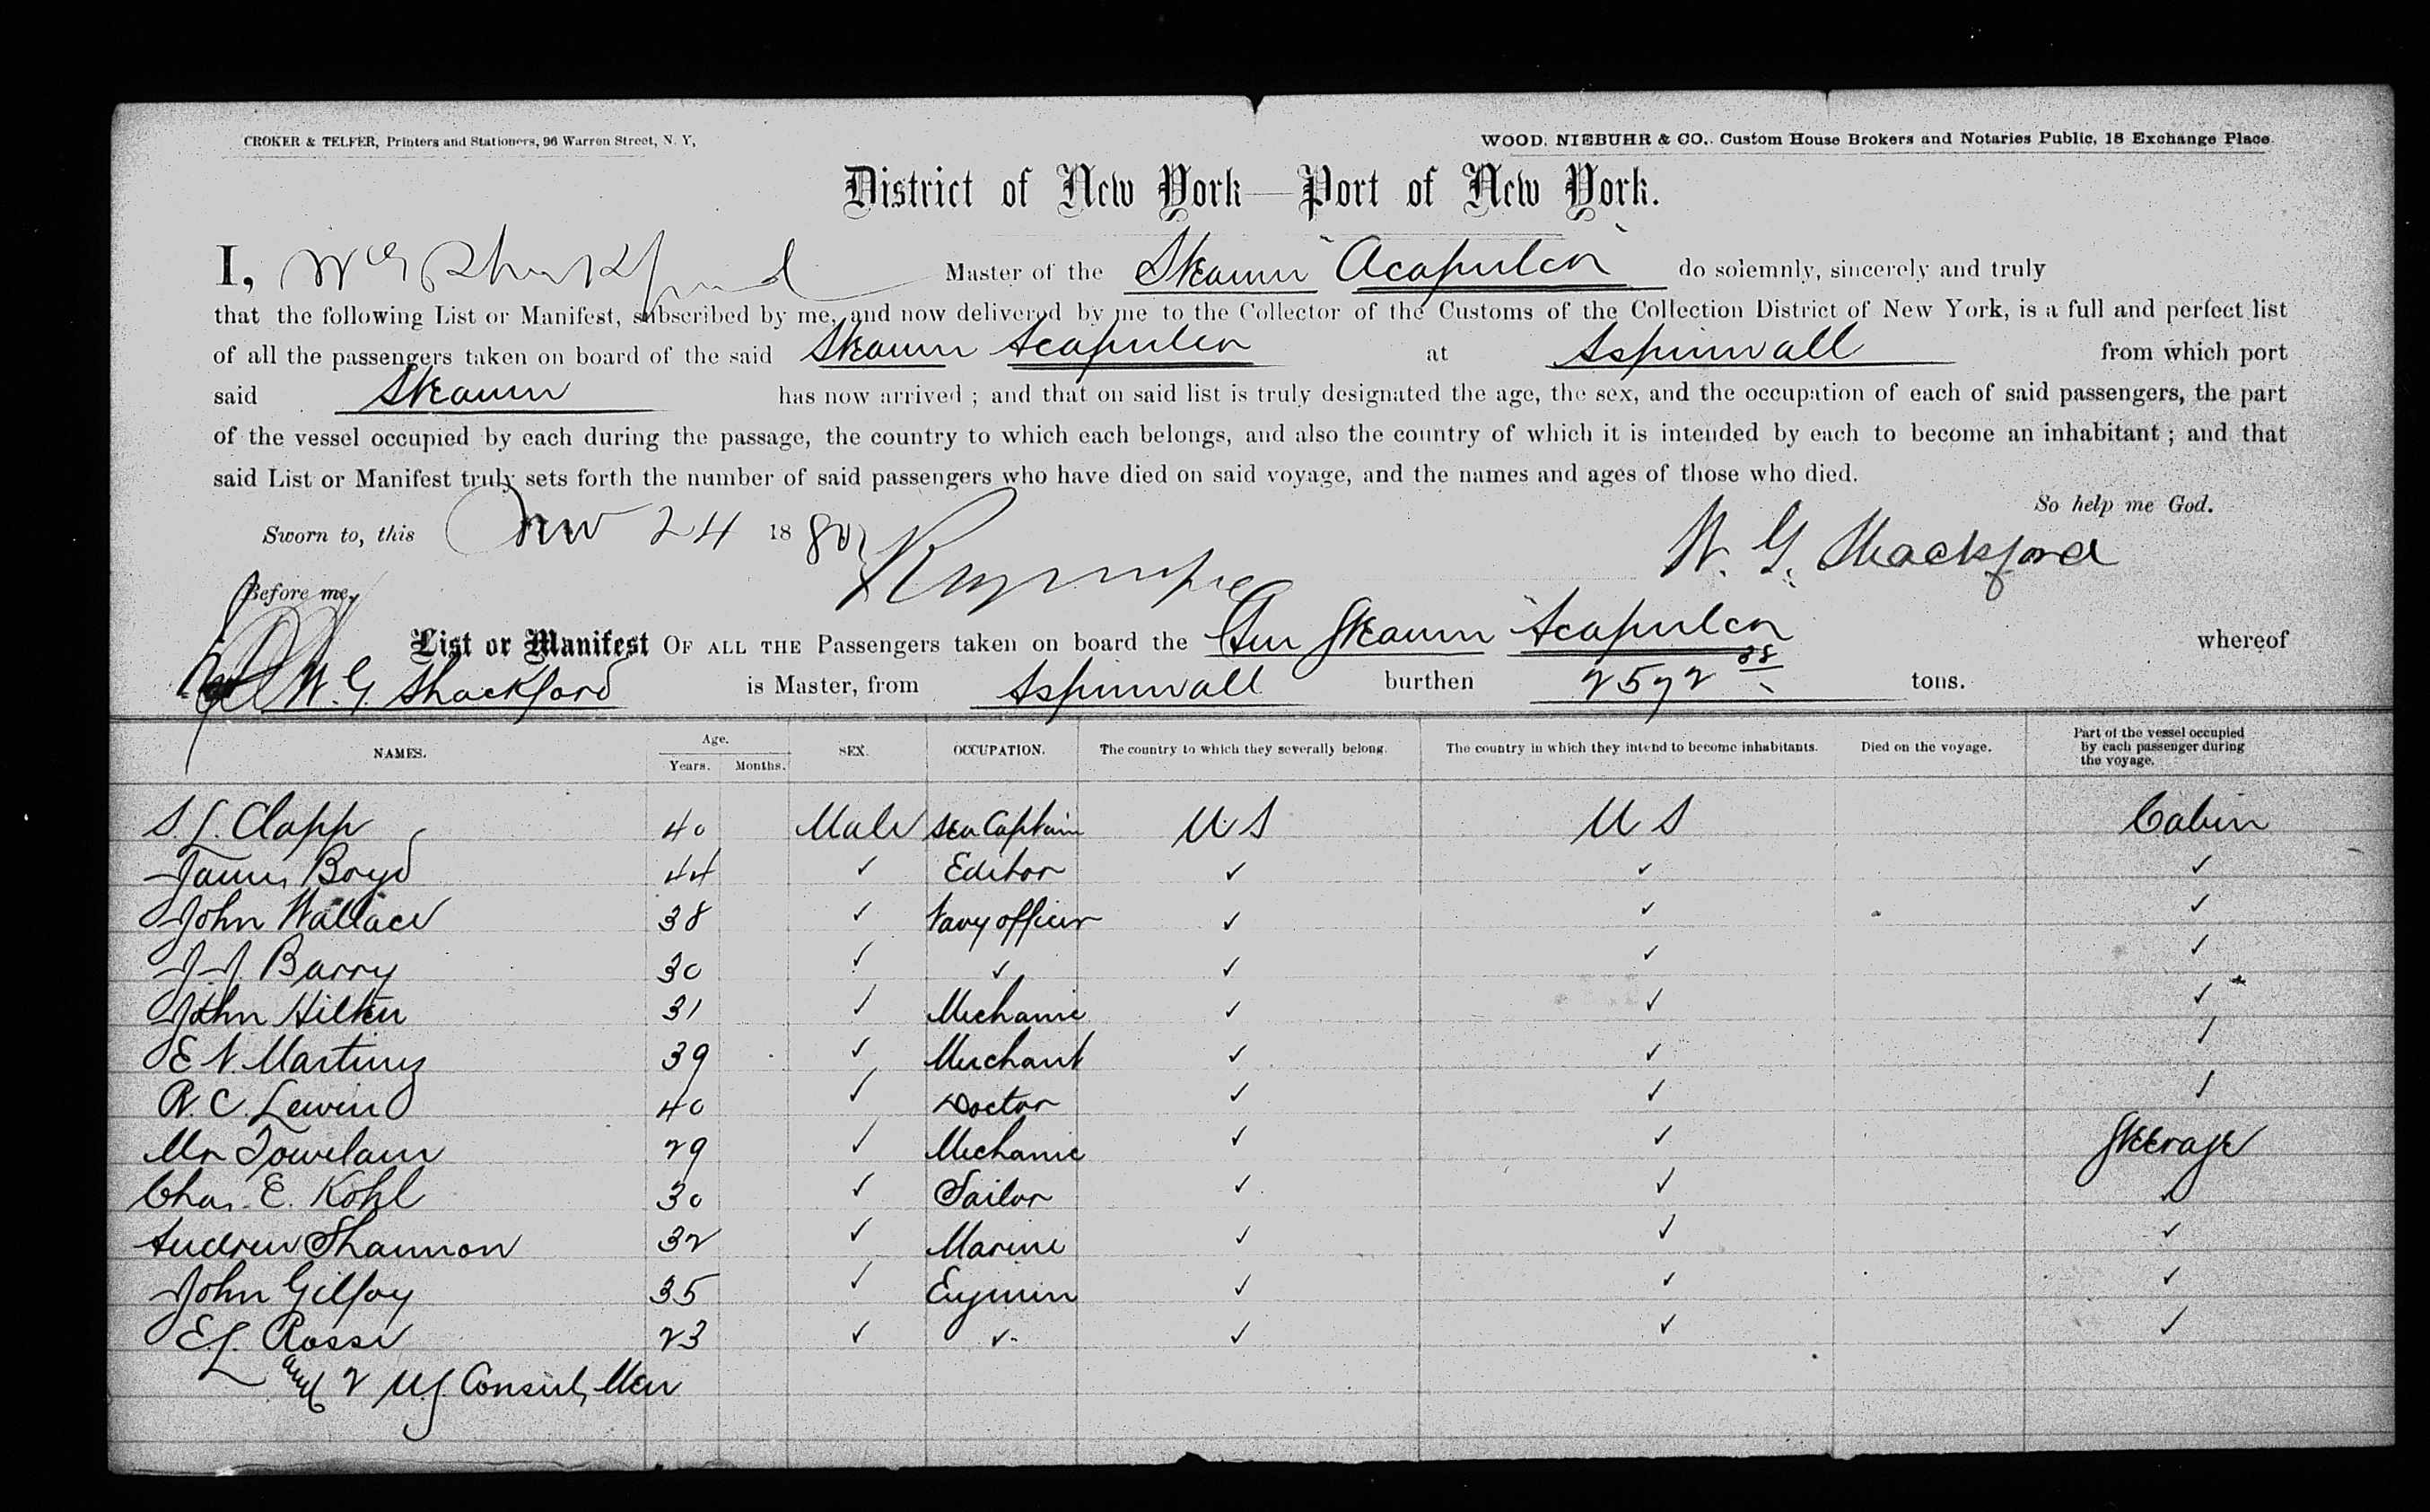 CROKER & TELFER, Printers and Stationers, 96 Warren Street, N. Y,
WOOD, NIEBUHR & CO., Custom House Brokers and Notaries Public, 18 Exchange Place.
District of New York—Port of New York.
I, W G Shackford Master of the Steamr "Acapulco" do solemnly, sincerely and truly
that the following List or Manifest, subscribed by me, and now delivered by me to the Collector of the Customs of the Collection District of New York, is a full and perfect list
of all the passengers taken on board of the said Steamr Acapulco at Aspinwall from which port
said Steamr has now arrived ; and that on said list is truly designated the age, the sex, and the occupation of each of said passengers, the part
of the vessel occupied by each during the passage, the country to which each belongs, and also the country of which it is intended by each to become an inhabitant ; and that
said List or Manifest truly sets forth the number of said passengers who have died on said voyage, and the names and ages of those who died.
So help me God.
Sworn to, this Nov 24 1880 W. G. Shackford
Before me,
List or Manifest OF ALL THE Passengers taken on board the Am Steamr "Acapulco" whereof
W. G. Shackford is Master, from Aspinwall burthen 2572 38 tons.
NAMES. Age. Years. Months. SEX. OCCUPATION. The country to which they severally belong. The country in which they intend to become inhabitants. Died on the voyage. Part of the vessel occupied by each passenger during the voyage.
S. L. Clapp 40 Male Sea Captain U.S U S Cabin
James Boyd 44 ✓ Editor ✓ ✓ ✓
John Wallace 38 ✓ Navy officer ✓ ✓ ✓
J. J. Barry 30 ✓ ✓ ✓ ✓ ✓
John Hilten 31 ✓ Mechanic ✓ ✓ ✓
E N Martinez 39 ✓ Merchant ✓ ✓ ✓
R. C. Lewin 40 ✓ Doctor ✓ ✓ ✓
Mr 29 ✓ Mechanic ✓ ✓ Steerage
Chas. E. Kohl 30 ✓ Sailor ✓ ✓ ✓
Andrew Shannon 32 ✓ Marine ✓ ✓ ✓
John Gilfoy 35 ✓ Enginen ✓ ✓ ✓
E. L. Rosse 23 ✓ ✓ ✓ ✓ ✓
and 2 U.S Consul, Men